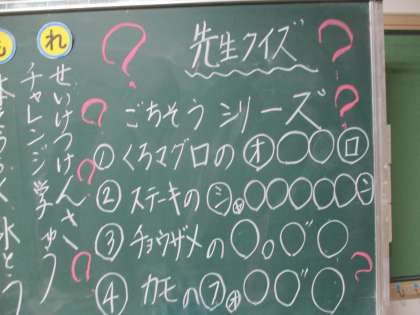 先生クイズ
ごちそう シリーズ
① くろマグロの オ○○ロ
② ステーキの シャ○○○○○ン
③ チョウザメの ○○○゛○
④ カモの フォ○○゛○
れ
せいけつけんさ
チャレンジ学しゅう
も
水とう